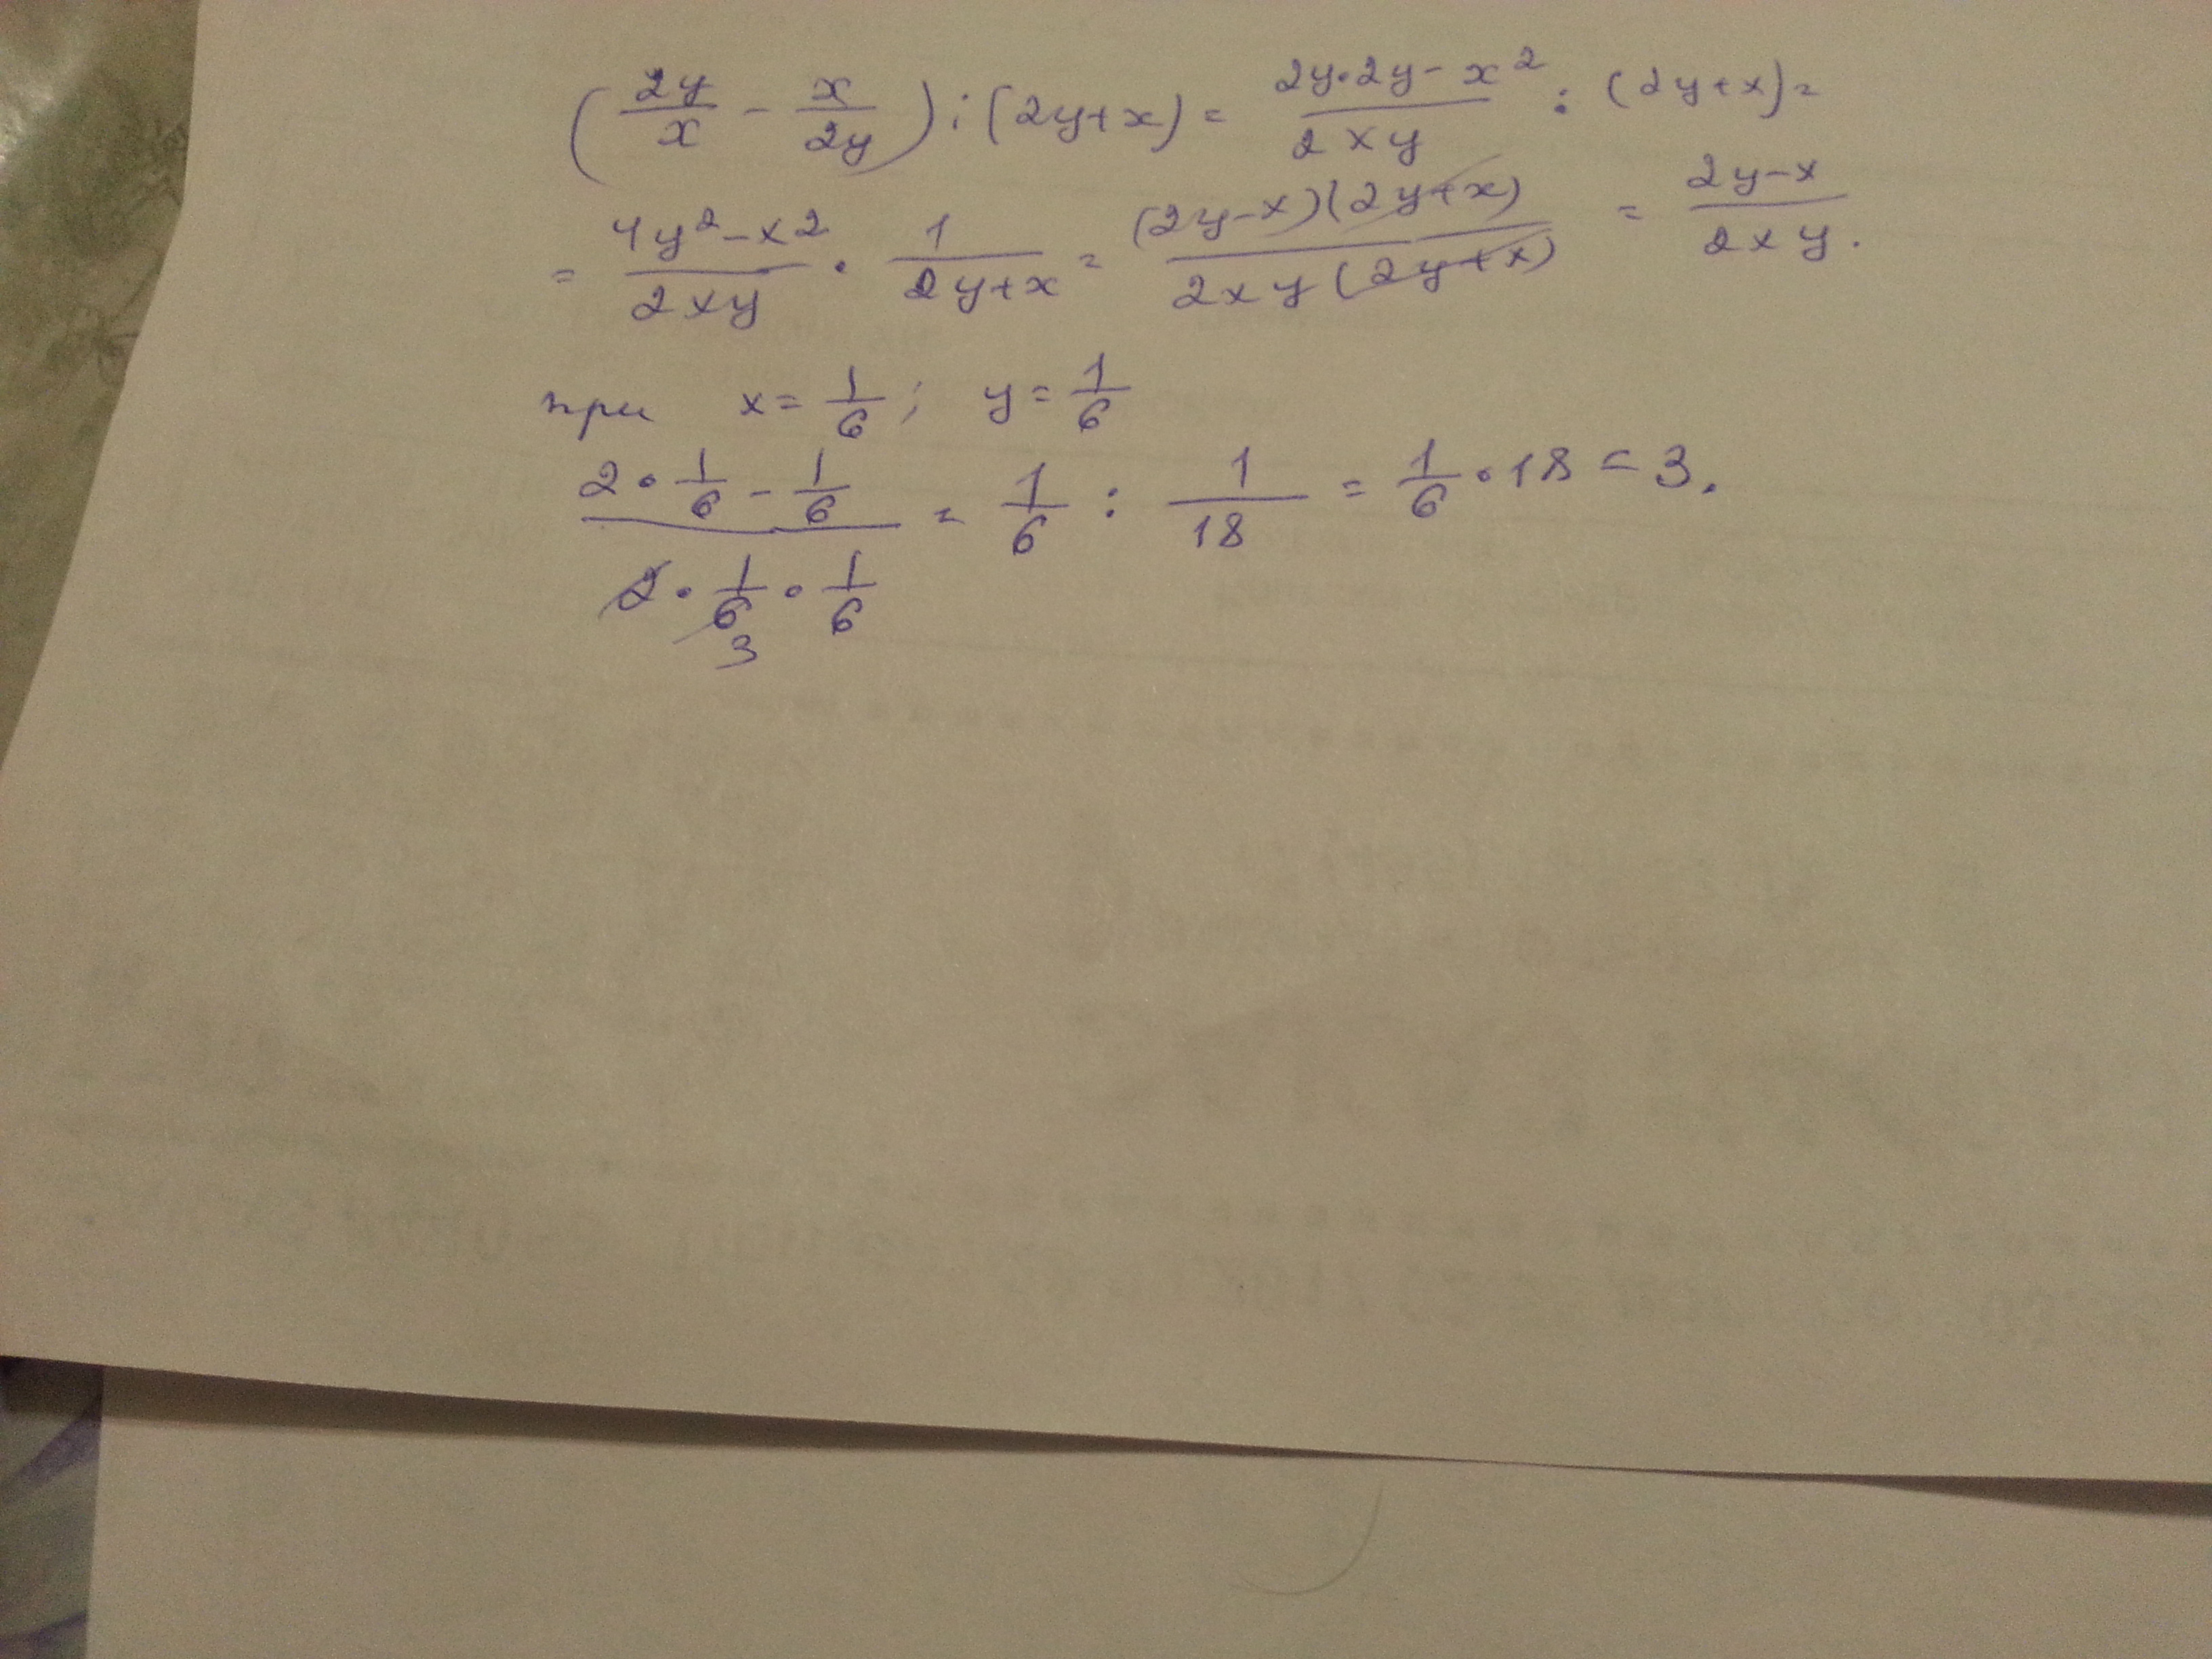 (2y/x - x/2y) : (2y+x) = (2y·2y - x²)/(2xy) : (2y+x) =
= (4y² - x²)/(2xy) · 1/(2y+x) = (2y-x)(2y+x)/(2xy(2y+x)) = (2y-x)/(2xy).
при x = 1/6; y = 1/6
(2 · 1/6 - 1/6)/(2 · 1/6 · 1/6) = 1/6 : 1/18 = 1/6 · 18 = 3.
3